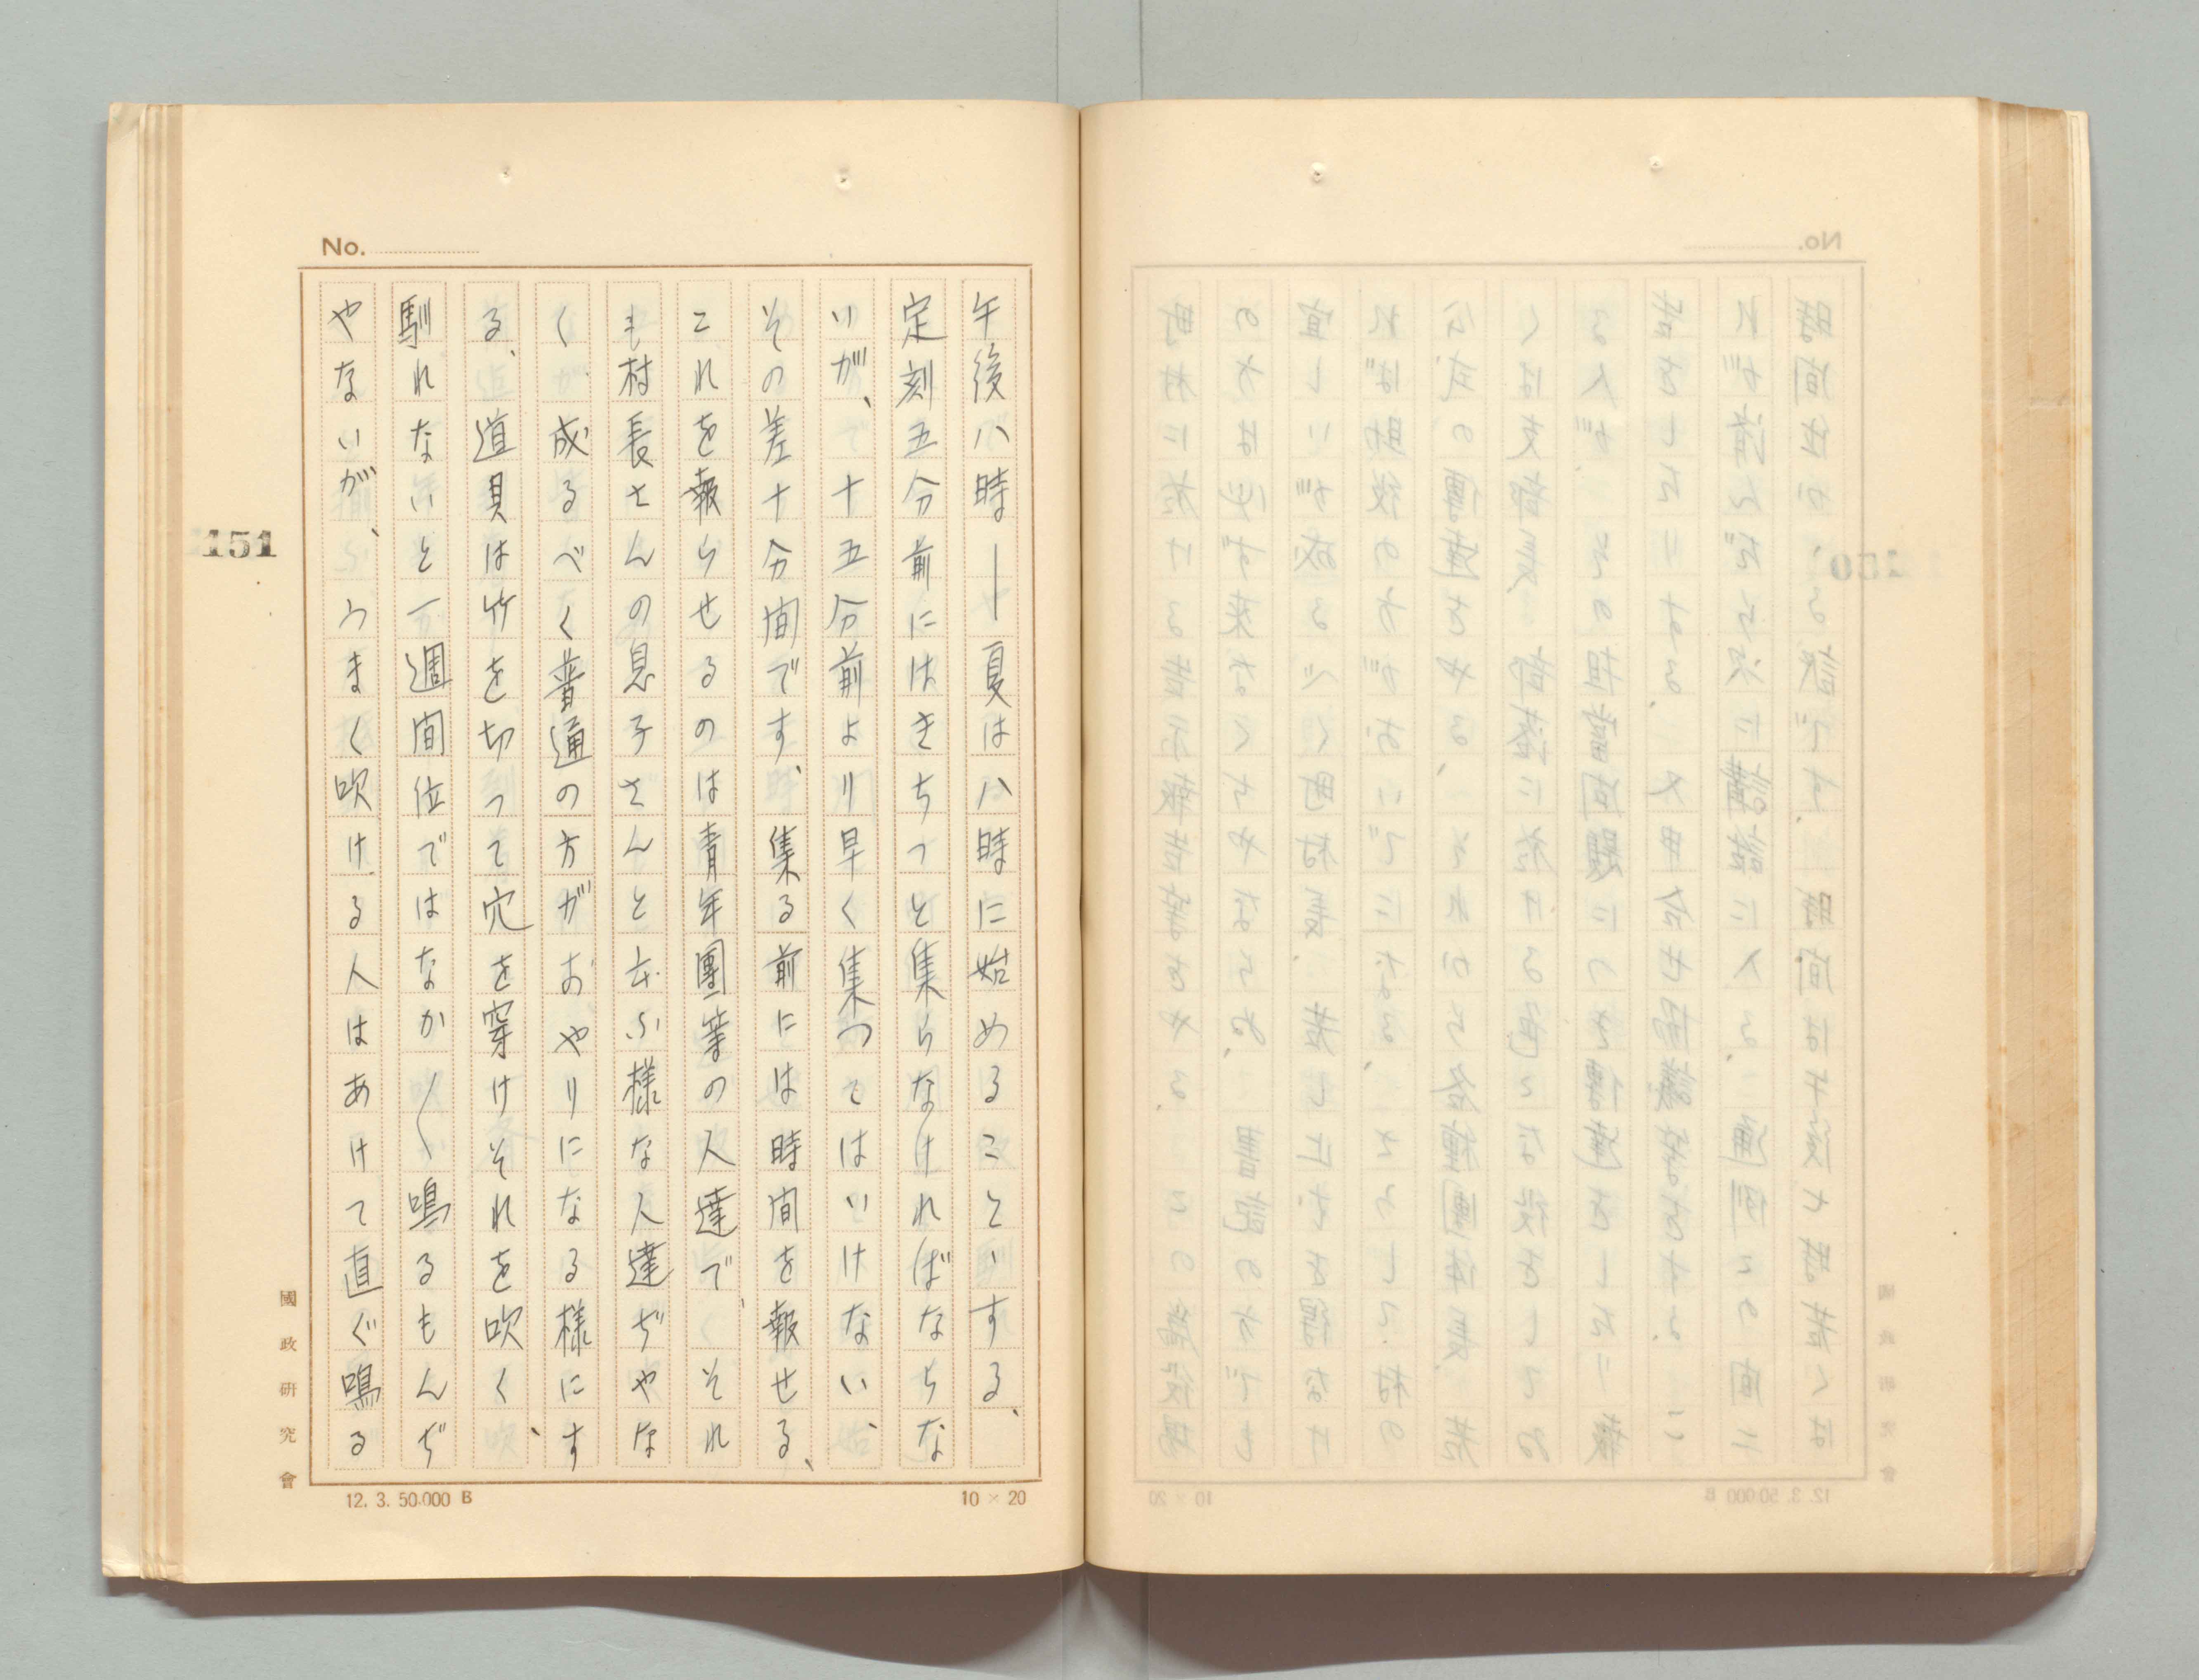 No.
午後八時―夏は八時に始めることゝする、
定刻五分前にはきちっと集らなければならな
いが、十五分前より早く集つてはいけない、
その差十分間です、集る前には時間を報せる、
これを報らせるのは青年團等の人達で、それ
も村長さんの息子さんと云ふ様な人達ぢやな
く成るべく普通の方がおやりになる様にす
る、道具は竹を切って穴を穿けそれを吹く、
馴れないと一週間位ではなか〱鳴るもんぢ
やないが、うまく吹ける人はあけて直ぐ鳴る
151
國政研究會
12. 3. 50.000 B
10×20